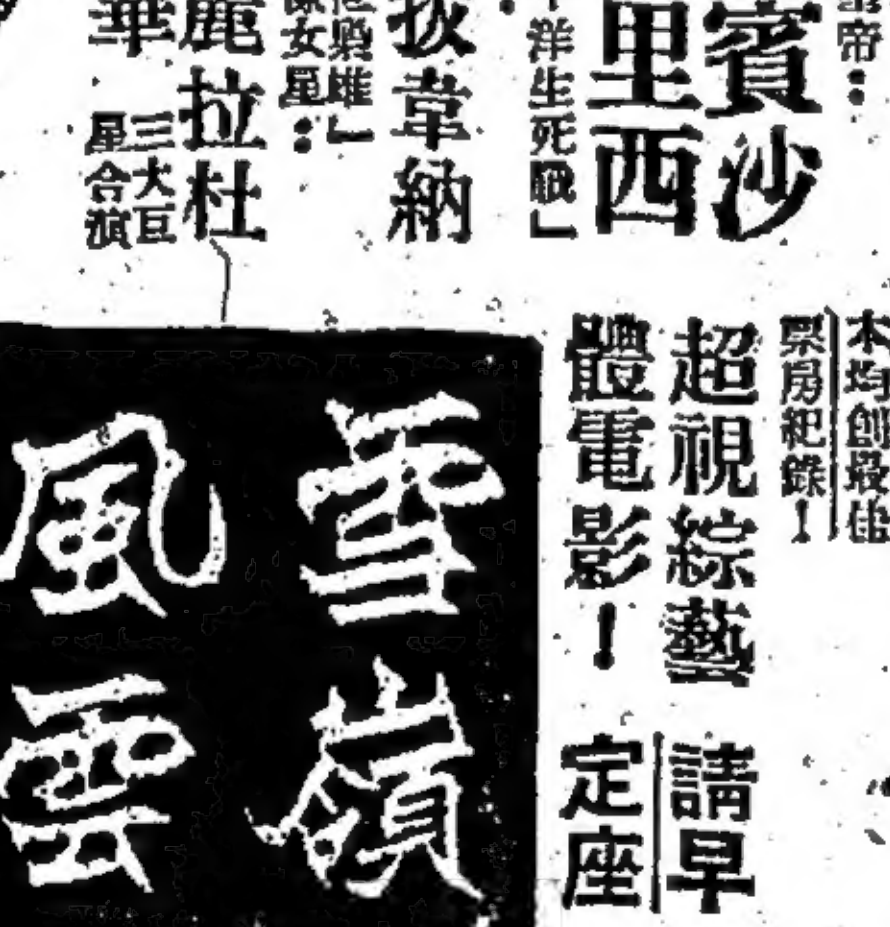 帝：
賓沙
里西
洋生死戰」
韋納
雄」
女星：
麗拉杜
華
三大巨
星合演
本均創最佳
票房紀錄！
超視綜藝
體電影！
請早
定座
雪嶺
風雲